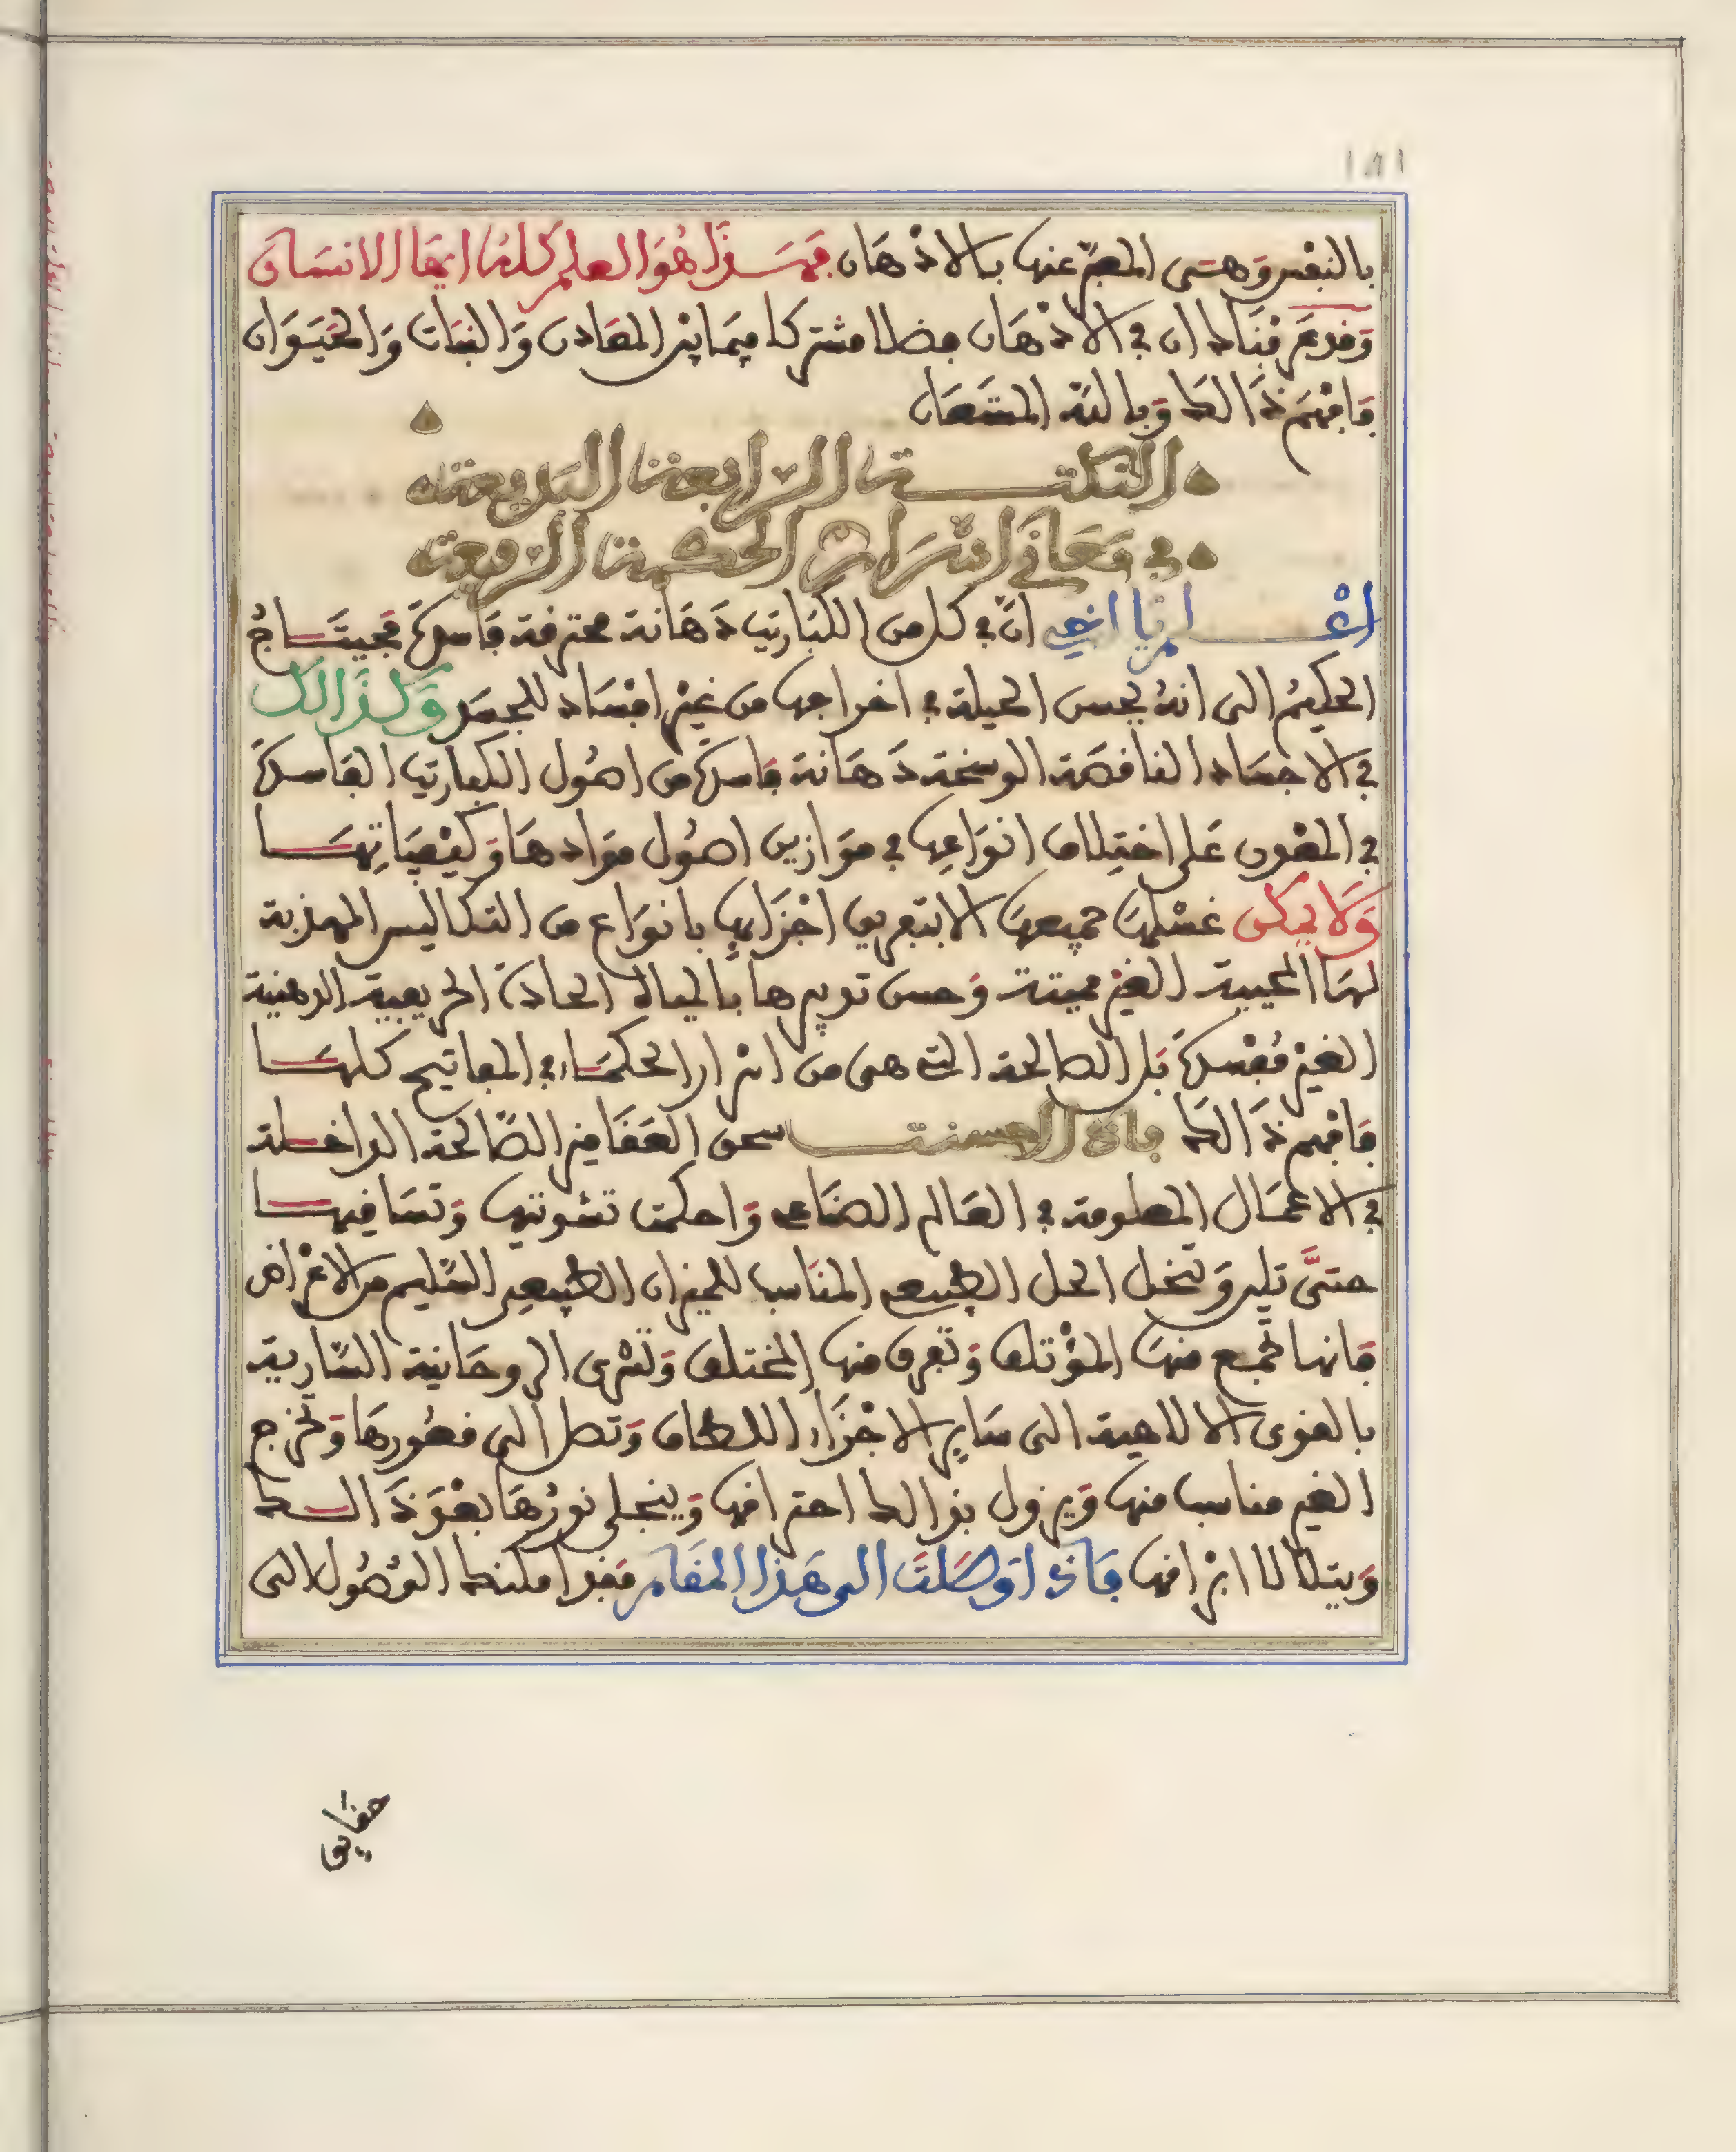 ١٨١
بالنفس وهي المعبر عنها بالاذهان فهذا هو العلم كله ايها الانسان
وقد عرفناك ان في الاذهان فضلا مشتركا فيما بين المعادن والنبات والحيوان
فافهم ذالك وبالله المستعان
النكتة الرابعة البديعة
في معاني اسرار الحكمة الرفيعة
اعلم يا اخي ان في كل من الكباريت دهانة محترقة فاسدة فيحتاج
الحكيم الى انه يحسن الحيلة في اخراجها من غير افساد للجسد وكذالك
في الاجساد الناقصة الوسخة دهانة فاسدة من اصول الكباريت الفاسدة
في المعدن على اختلاف انواعها في موازين اصول موادها وكيفياتها
ولا يمكن غسلها جميعها الا بتفريق اجزايها بانواع من التكاليس المهذبة
لها المحيية الغير مميتة وحسن تدبيرها بالمياه الحادة الحريفية الدهنية
الغير مفسدة بل الصالحة التي هي من اسرار الحكماء في المفاتيح كلها
فافهم ذالك فاذا احسنت سحق العقاقير الصالحة الداخلة
في الاعمال المعلومة في العالم الصناعي واحكمت تشويتها وتساقيها
حتى تلين وتنحل الحل الطبيعي المناسب للميزان الطبيعي السليم من الاعراض
فانها تجمع منها المؤتلف وتفرق منها المختلف وتسرى الروحانية السارية
بالقوى الالاهية الى ساير الاجزاء اللطاف وتصل الى قعورها وتخرج
الغير مناسب منها ويزول بذالك احتراقها وينجلي نورها بعد ذالك
ويتلالا اشراقها فاذا وصلت الى هذا المقام فقد امكنك الوصول الى
حقايق